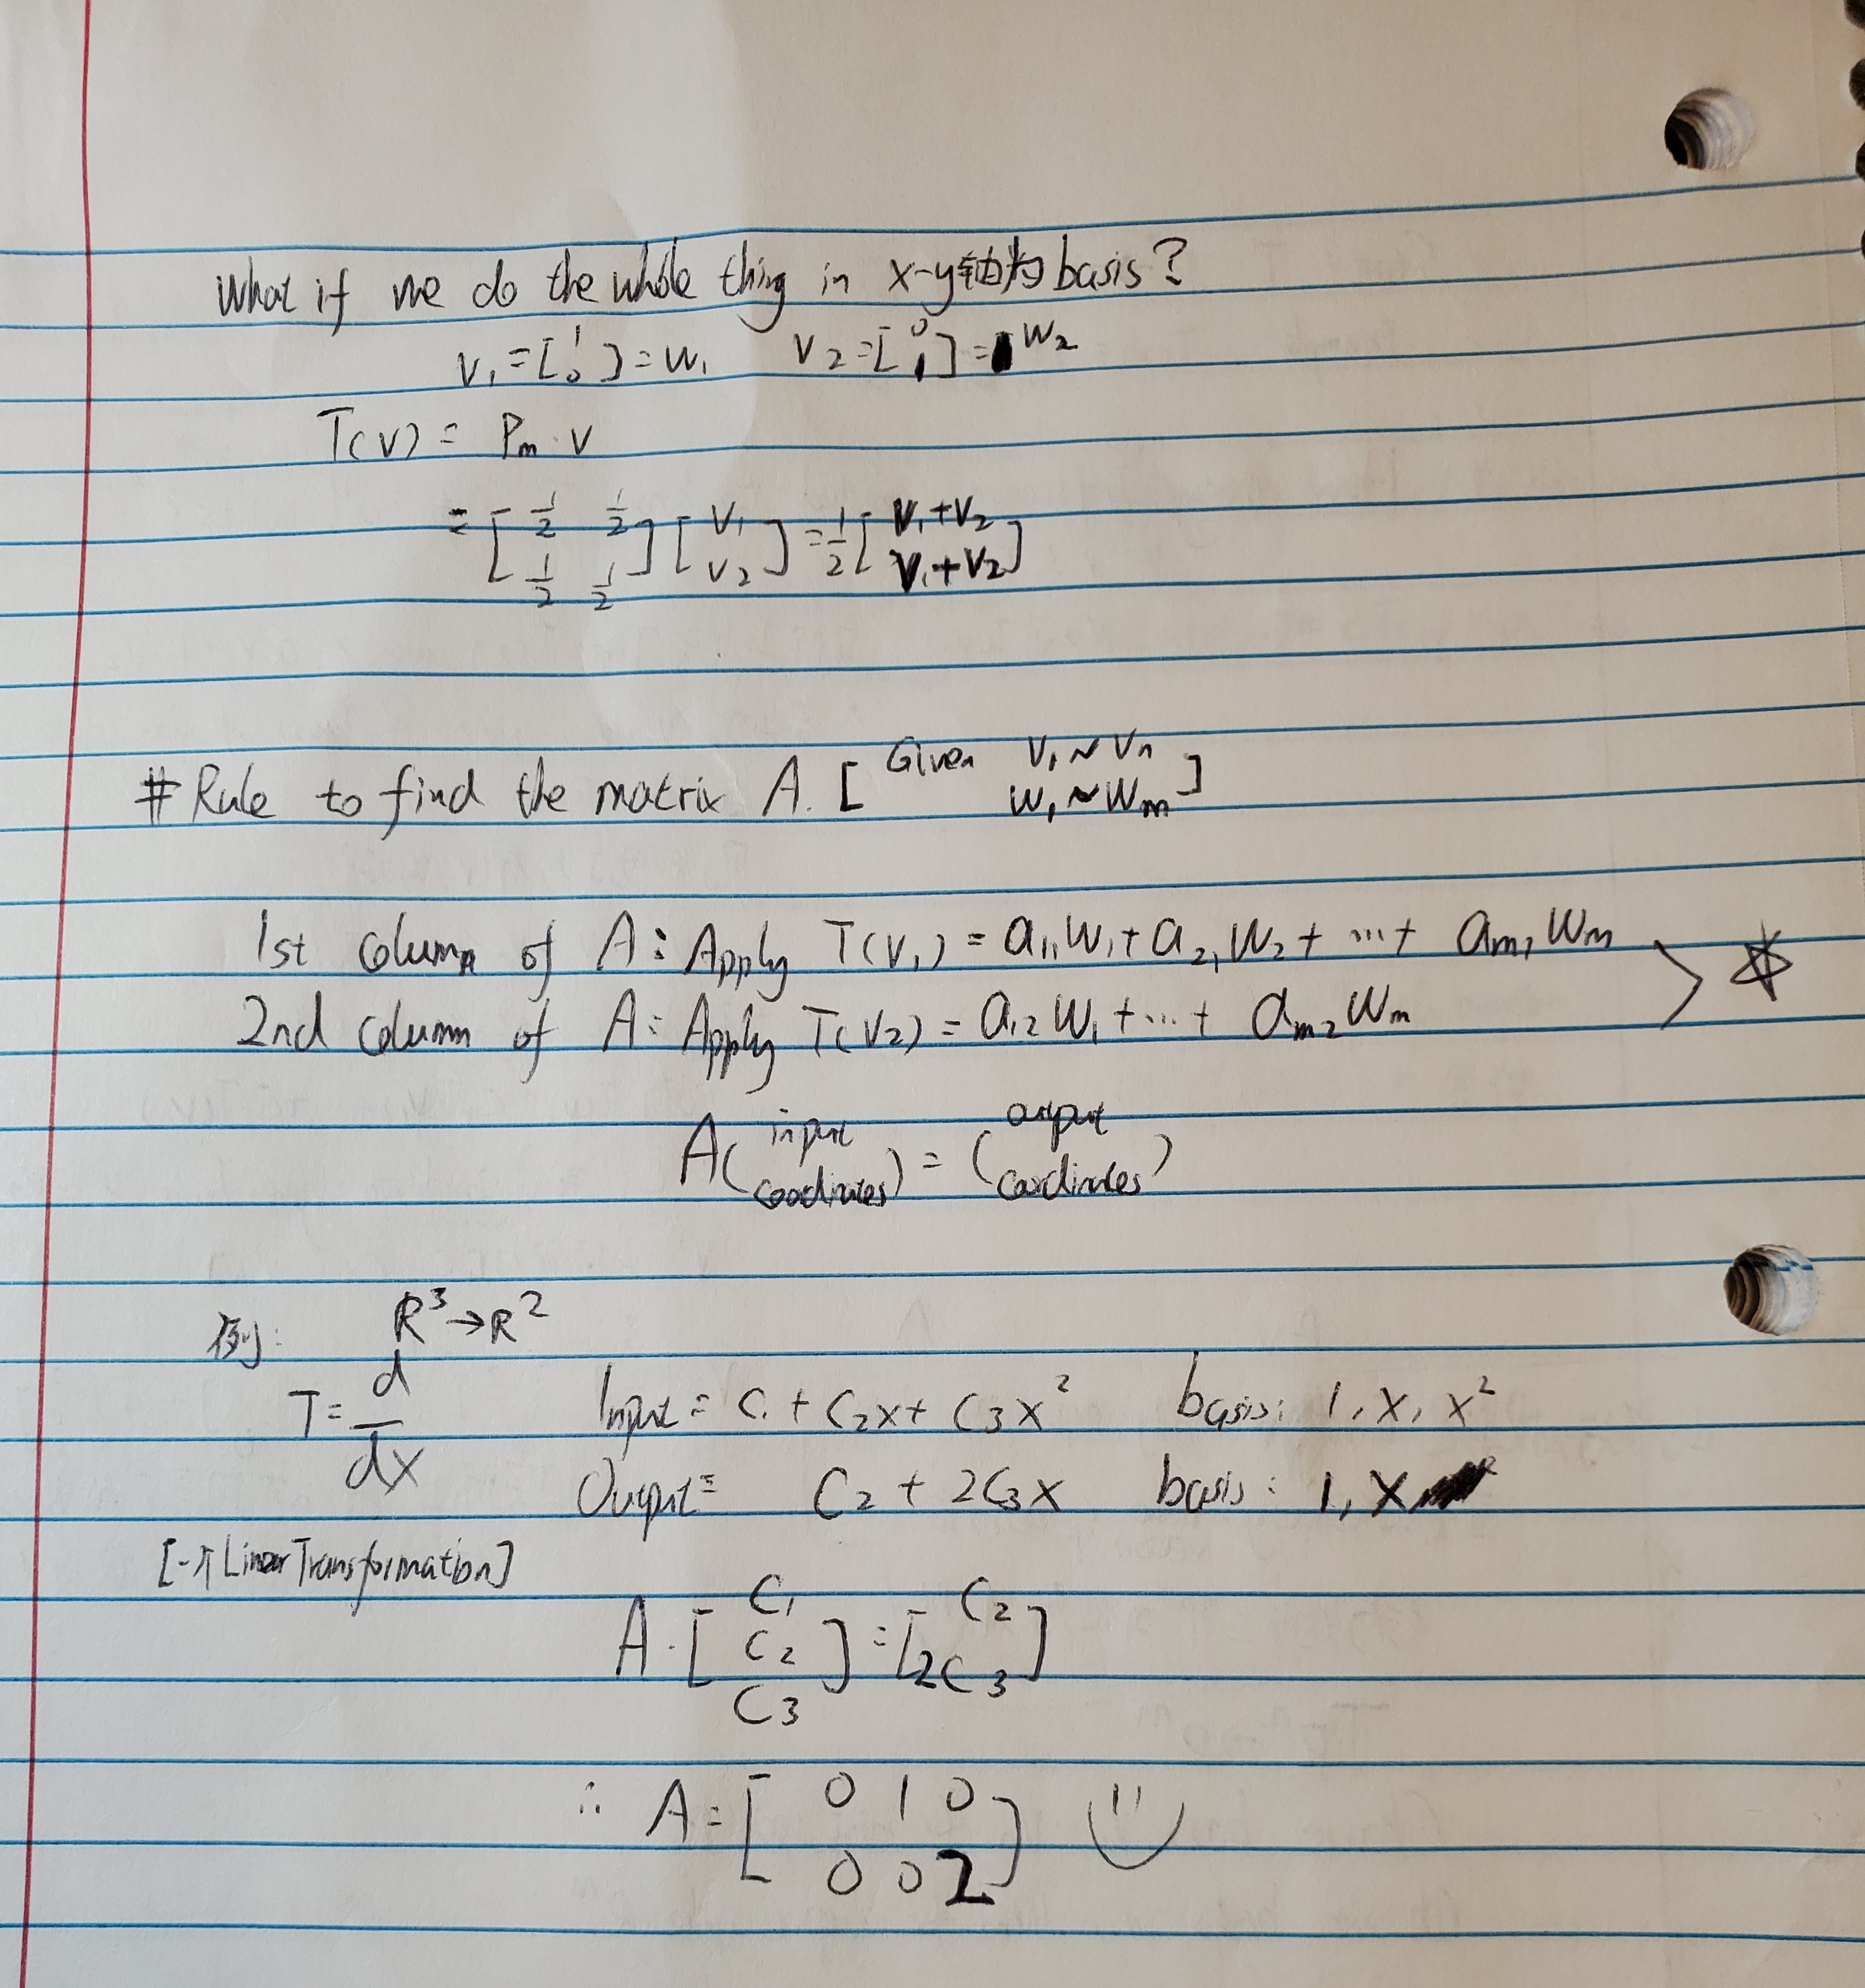 What if we do the whole thing in x-y轴为basis?
V₁=[1 0]=W₁ V₂=[0 1]=W₂
T(V) = Pm·V
=[1/2 1/2; 1/2 1/2][V₁ V₂]=1/2[V₁+V₂ V₁+V₂]
# Rule to find the matrix A. [Given V₁~Vn W₁~Wm]
1st column of A: Apply T(V₁) = a₁₁W₁+a₂₁W₂+ ...+ am₁Wm
2nd column of A: Apply T(V₂) = a₁₂W₁+...+ am₂Wm
A(input coodinates) = (output coodinates)
例: R³→R²
T=d/dx Input= C₁+C₂x+C₃x² basis: 1, x, x²
Output= C₂+2C₃x basis: 1, x
[一个Linear Transformation]
A·[C₁ C₂ C₃]=[C₂ 2C₃]
∴ A=[0 1 0; 0 0 2]